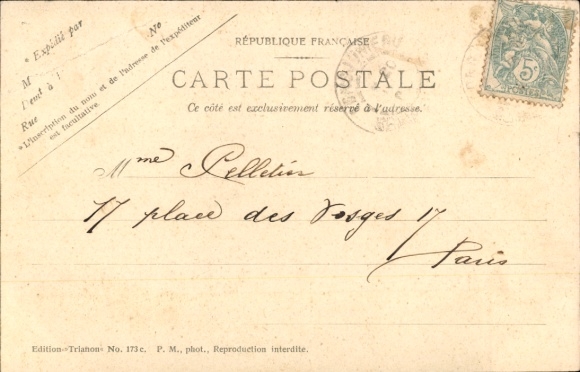 * Expédié par
M
Demt à
Rue No
* L'inscription du nom et de l'adresse de l'expéditeur
est facultative.
RÉPUBLIQUE FRANÇAISE
CARTE POSTALE
Ce côté est exclusivement réservé à l'adresse.
5c
POSTES
Mme Pelletier
17 place des Vosges 17
Paris
Edition-«Trianon» No. 173 c. P. M., phot., Reproduction interdite.